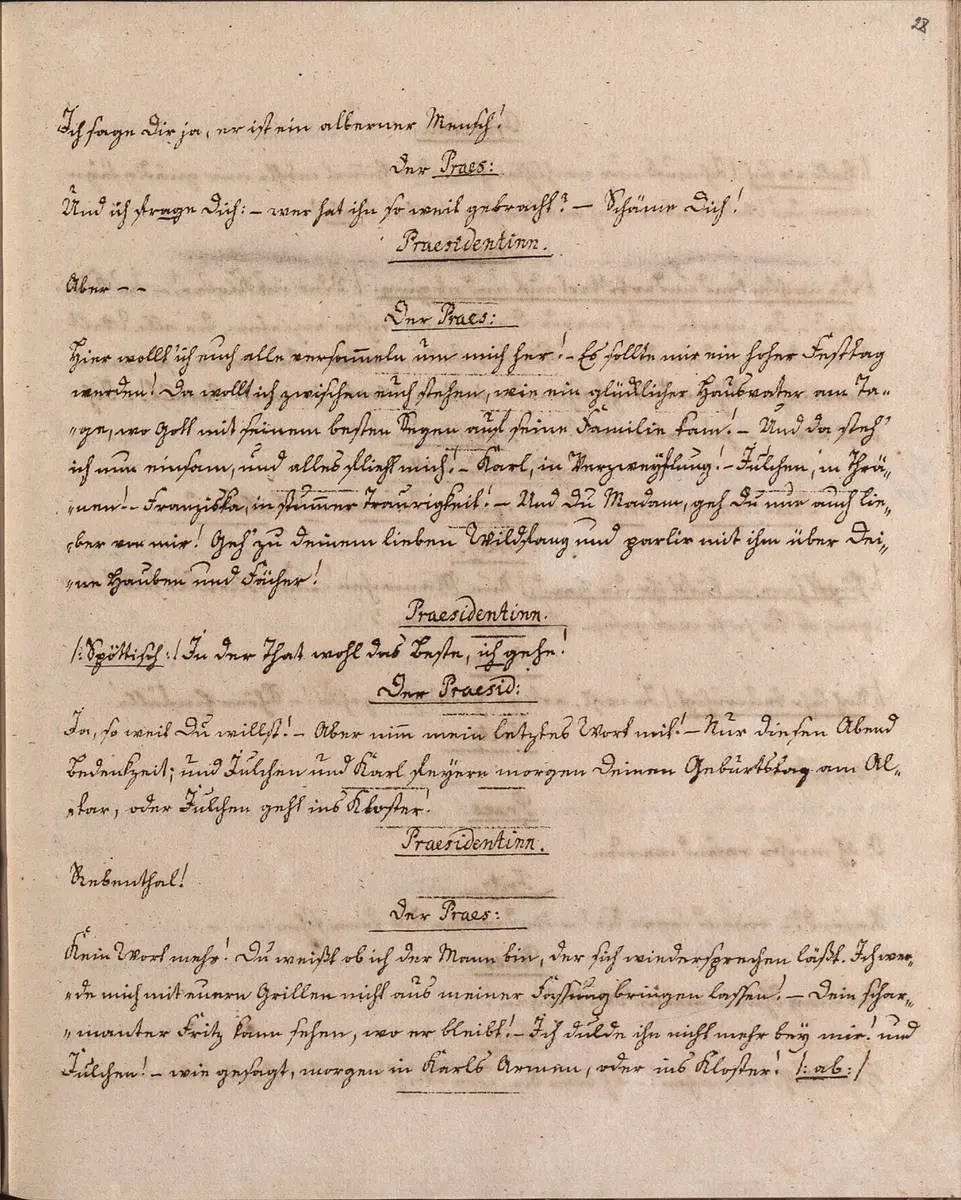 28
Ich sage Dir ja, er ist ein alberner Mensch!
Der Praes:
Und ich frage Dich: – wer hat ihn so weit gebracht? – Schäme Dich!
Praesidentinn.
Aber – –
Der Praes:
Hier wollt' ich euch alle versammeln um mich her! – Es sollte mir ein hoher Festtag
werden! Da wollt ich zwischen euch stehen, wie ein glücklicher Hausvater am Ta-
-ge, wo Gott mit seinem besten Segen auf seine Familie kam! – Und da steh'
ich nun einsam, und alles flieht mich! – Karl, in Verzweyflung! – Julchen, in Thrä-
-nen! – Franziska, in stummer Traurigkeit! – Und Du Madam, geh Du nur auch lie-
-ber von mir! Geh' zu deinem lieben Wildfang und parlir mit ihm über Dei-
-ne Hauben und Fächer!
Praesidentinn.
/: Spöttisch :/ In der That wohl das Beste, ich gehe!
Der Praesid:
Ja, so weit Du willst! – Aber nimm mein letztes Wort mit! – Nur diesen Abend
Bedenkzeit; und Julchen und Karl feyern morgen Deinen Geburtstag am Al-
-tar, oder Julchen geht ins Kloster!
Praesidentinn.
Rebenthal!
Der Praes:
Kein Wort mehr! Du weißt ob ich der Mann bin, der sich wiedersprechen läßt. Ich wer-
-de mich mit euern Grillen nicht aus meiner Fassung bringen lassen! – Dein schar-
-manter Fritz kann sehen, wo er bleibt! – Ich dulde ihn nicht mehr bey mir! und
Julchen! – wie gesagt, morgen in Karls Armen, oder ins Kloster! /: ab :/